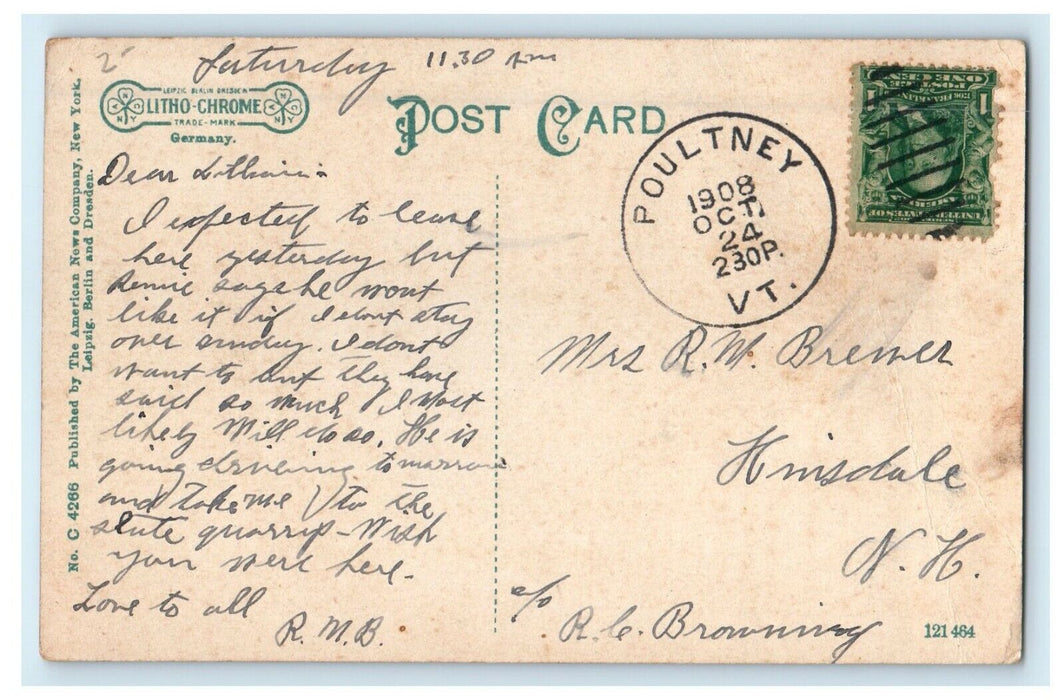 Saturday 11.30 Am
LEIPZIG BERLIN DRESDEN
LITHO-CHROME
TRADE-MARK
Germany.
POST CARD
No. C 4266 Published by The American News Company, New York.
Leipzig. Berlin and Dresden.
Dear
I expected to leave
here yesterday but
says he wont
like it if I dont stay
over sunday. I dont
want to but they have
said so much I most
likely will do so. He is
going driveing tomarrow
and take me to the
slate quarrys - Wish
you were here.
Love to all
R.M.B.
POULTNEY
1908
OCT
24
230P.
VT.
ONE CENT
1 1
UNITED STATES OF AMERICA
Mrs R.W. Brewer
Hinsdale
N. H.
c/o
R.C. Browning
121 464